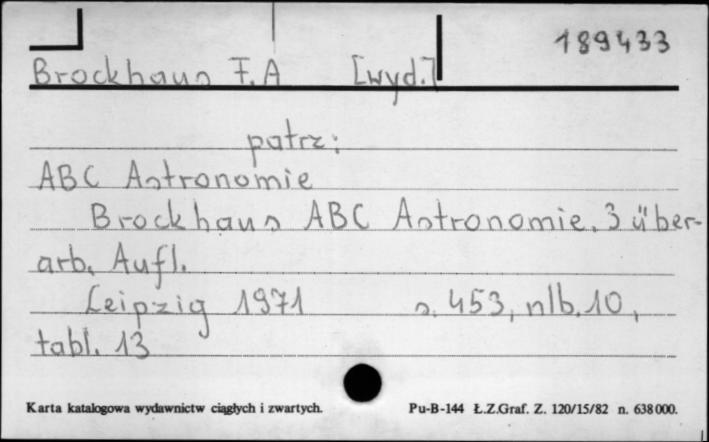 189433
Brockhaus F.A [wyd.]
patrz:
ABC Astronomie
Brockhaus ABC Astronomie. 3 über-
arb. Aufl.
Leipzig 1971 s. 453, nlb. 10,
tabl. 13
Karta katalogowa wydawnictw ciągłych i zwartych. Pu-B-144 Ł.Z.Graf. Z. 120/15/82 n. 638000.